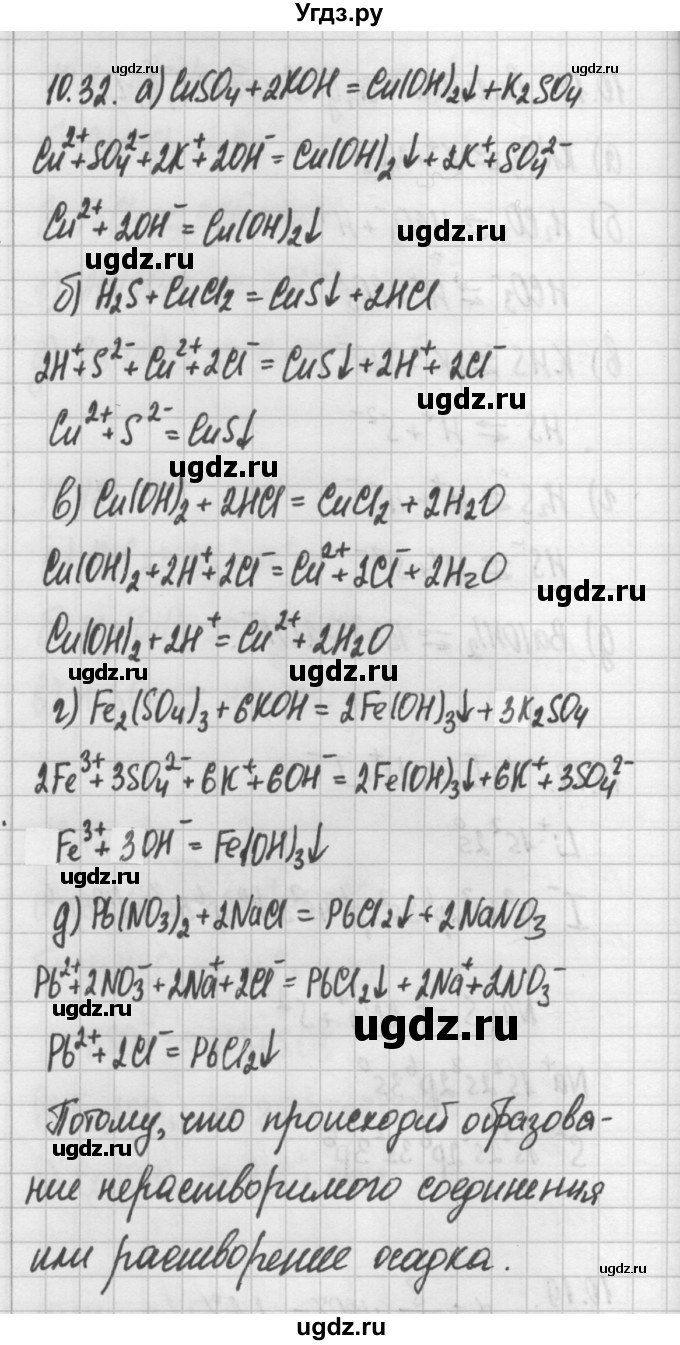 Угдз.ру
ugdz.ru ugdz.ru
10.32. а) CuSO4 + 2KOH = Cu(OH)2↓ + K2SO4
Cu²⁺ + SO4²⁻ + 2K⁺ + 2OH⁻ = Cu(OH)2↓ + 2K⁺ + SO4²⁻
Cu²⁺ + 2OH⁻ = Cu(OH)2↓
ugdz.ru ugdz.ru
б) H2S + CuCl2 = CuS↓ + 2HCl
2H⁺ + S²⁻ + Cu²⁺ + 2Cl⁻ = CuS↓ + 2H⁺ + 2Cl⁻
ugdz.ru
Cu²⁺ + S²⁻ = CuS↓
ugdz.ru
в) Cu(OH)2 + 2HCl = CuCl2 + 2H2O
Cu(OH)2 + 2H⁺ + 2Cl⁻ = Cu²⁺ + 2Cl⁻ + 2H2O
ugdz.ru
Cu(OH)2 + 2H⁺ = Cu²⁺ + 2H2O
ugdz.ru ugdz.ru
г) Fe2(SO4)3 + 6KOH = 2Fe(OH)3↓ + 3K2SO4
2Fe³⁺ + 3SO4²⁻ + 6K⁺ + 6OH⁻ = 2Fe(OH)3↓ + 6K⁺ + 3SO4²⁻
Fe³⁺ + 3OH⁻ = Fe(OH)3↓
ugdz.ru
д) Pb(NO3)2 + 2NaCl = PbCl2↓ + 2NaNO3
Pb²⁺ + 2NO3⁻ + 2Na⁺ + 2Cl⁻ = PbCl2↓ + 2Na⁺ + 2NO3⁻
ugdz.ru
Pb²⁺ + 2Cl⁻ = PbCl2↓
Потому, что происходит образова-
ugdz.ru
ние нерастворимого соединения
или растворение осадка.
ugdz.ru ugdz.ru
ugdz.ru